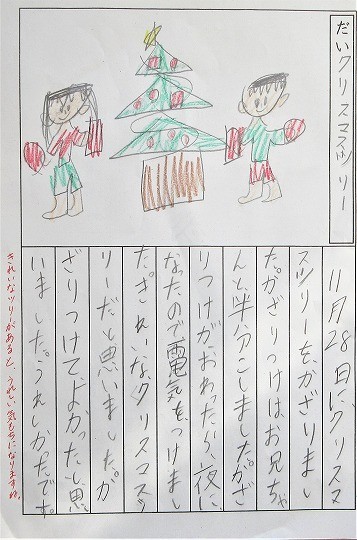 だいクリスマスツリー
11月28日にクリスマ
スツリーをかざりまし
た。かざりつけは、お兄ちゃ
んと半分こしました。かざ
りつけがおわったら、夜に
なったので電気をつけまし
た。きれいなクリスマスツ
リーだと思いました。か
ざりつけてよかったと思
いました。うれしかったです。
きれいなツリーがあると、うれしい気もちになりますね。